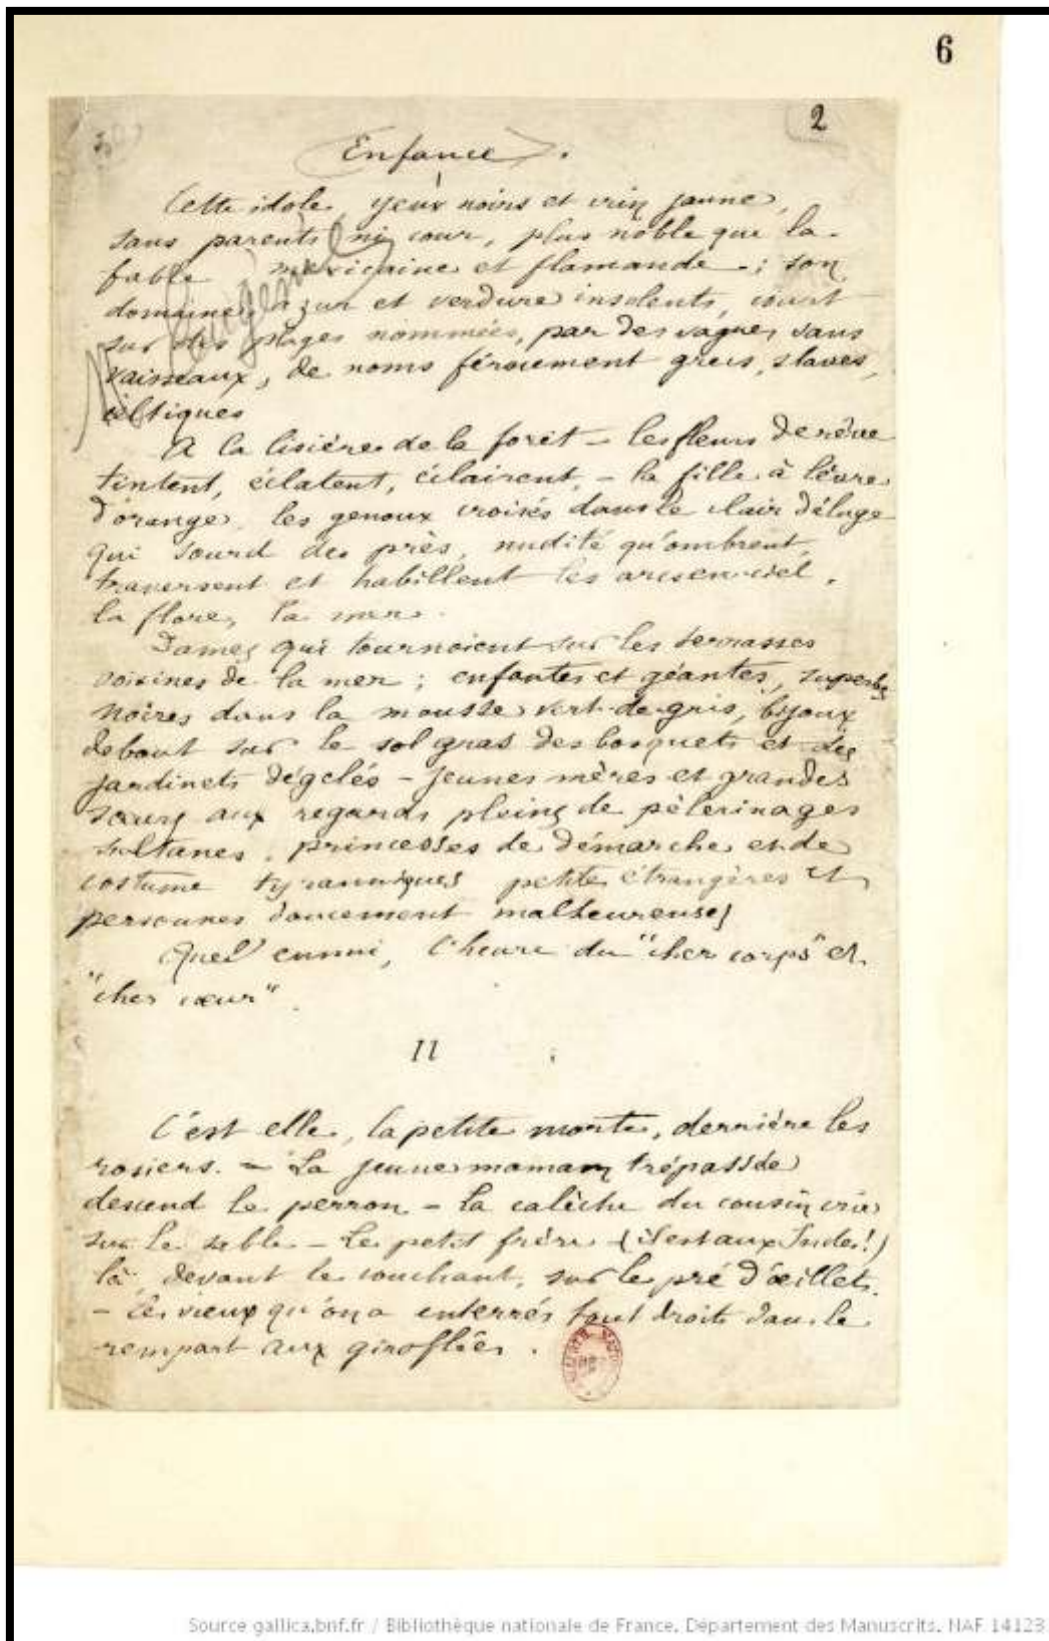 6
2
Enfance.
Cette idole, yeux noirs et crin jaune,
sans parents ni cour, plus noble que la
fable mexicaine et flamande ; son
domaine, azur et verdure insolents, court
sur des plages nommées, par des vagues sans
vaisseaux, de noms férocement grecs, slaves,
celtiques
A la lisière de la forêt – les fleurs de rêve
tintent, éclatent, éclairent, – la fille à lèvre
d'orange, les genoux croisés dans le clair déluge
qui sourd des près, nudité qu'ombrent,
traversent et habillent les arcs en ciel,
la flore, la mer.
Dames qui tournoient sur les terrasses
voisines de la mer ; enfantes et géantes, superbes
noires dans la mousse vert-de-gris, bijoux
debout sur le sol gras des bosquets et des
jardinets dégelés – jeunes mères et grandes
sœurs aux regards pleins de pèlerinages
sultanes, princesses de démarche et de
costume tyranniques petites étrangères et
personnes doucement malheureuses
Quel ennui, l'heure du "cher corps" et
"cher cœur"
II
C'est elle, la petite morte, derrière les
rosiers. – La jeune maman trépassée
descend le perron – La calèche du cousin crie
sur le sable – Le petit frère – (il est aux Indes!)
là, devant le couchant, sur le pré d'œillets.
– Les vieux qu'on a enterrés tout droits dans le
rempart aux giroflées.
Source gallica.bnf.fr / Bibliothèque nationale de France. Département des Manuscrits. NAF 14123